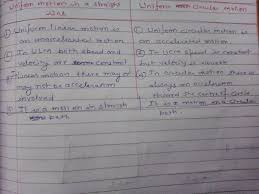 Uniform motion in a straight line
① Uniform linear motion is an unaccelerated motion
② In ULM both speed and velocity are constant
③ Linear motion there may or may not be acceleration involved
④ It is a motion in straight path
Uniform circular motion
① Uniform circular motion is an accelerated motion
② In UCM speed is constant but velocity is
③ In circular motion there is always an acceleration toward the centre of circle
④ It is a motion in a circular path.